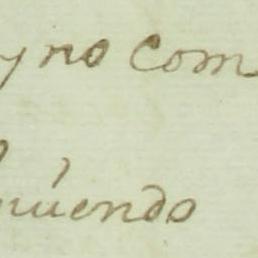 y no com
uiendo